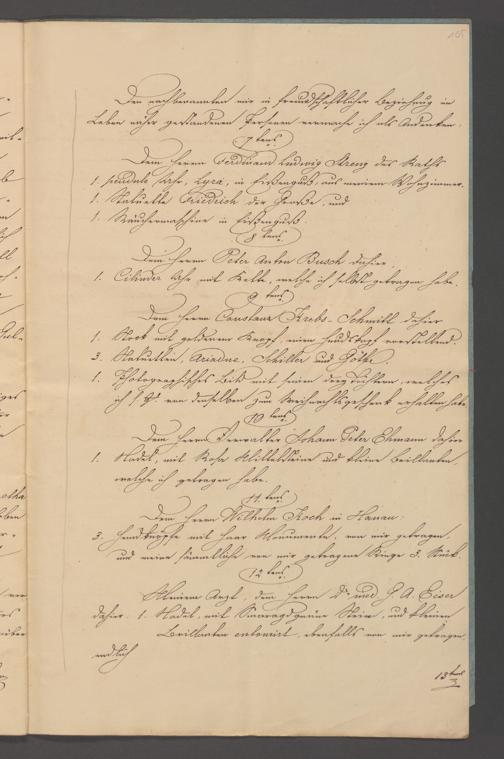 105
Den nachbenannten mir in freundschaftlicher Beziehung im
Leben näher gestandenen Personen vermache ich als Andenken.
7tens
Dem Herrn Ferdinand Ludwig des Raths
1. pendule Uhr, Lyra, in Eisenguß, aus meinem Wohnzimmer.
1. Statuette Friedrich der Große, und
1. Räuchermaschine in Eisenguß.
8tens.
Dem Herrn Peter Anton Busch dahier.
1. Cilinder Uhr mit Kette, welche ich selbst getragen habe.
9tens
Dem Herrn Constanz Krebs-Schmitt dahier
1. Stock mit goldenem Knopf, einen Hundskopf vorstellend.
3. Statuetten, Ariadne, Schiller und Göthe.
1. Photographisches Bild mit seinen drey Töchtern, welches
ich von denselben zum Weihnachtsgeschenk erhalten habe
10tens
Dem Herrn Verwalter Johann Peter Ehmann dahier
1. Nadel, mit Rosa und kleine Brillanten,
welche ich getragen habe.
11.tens
Dem Herrn Wilhelm Koch in Hanau:
3. Hemdknöpfe mit Haar von mir getragen,
und meine sämmtliche von mir getragene Ringe 3. Stück.
12tens
Meinem Arzt, dem Herrn Dr. med. G. A. Eiser
dahier. 1. Nadel mit Smaragdgrüne Stein, und kleinen
Brillanten entourirt, ebenfalls von mir getragen.
endlich
13tens